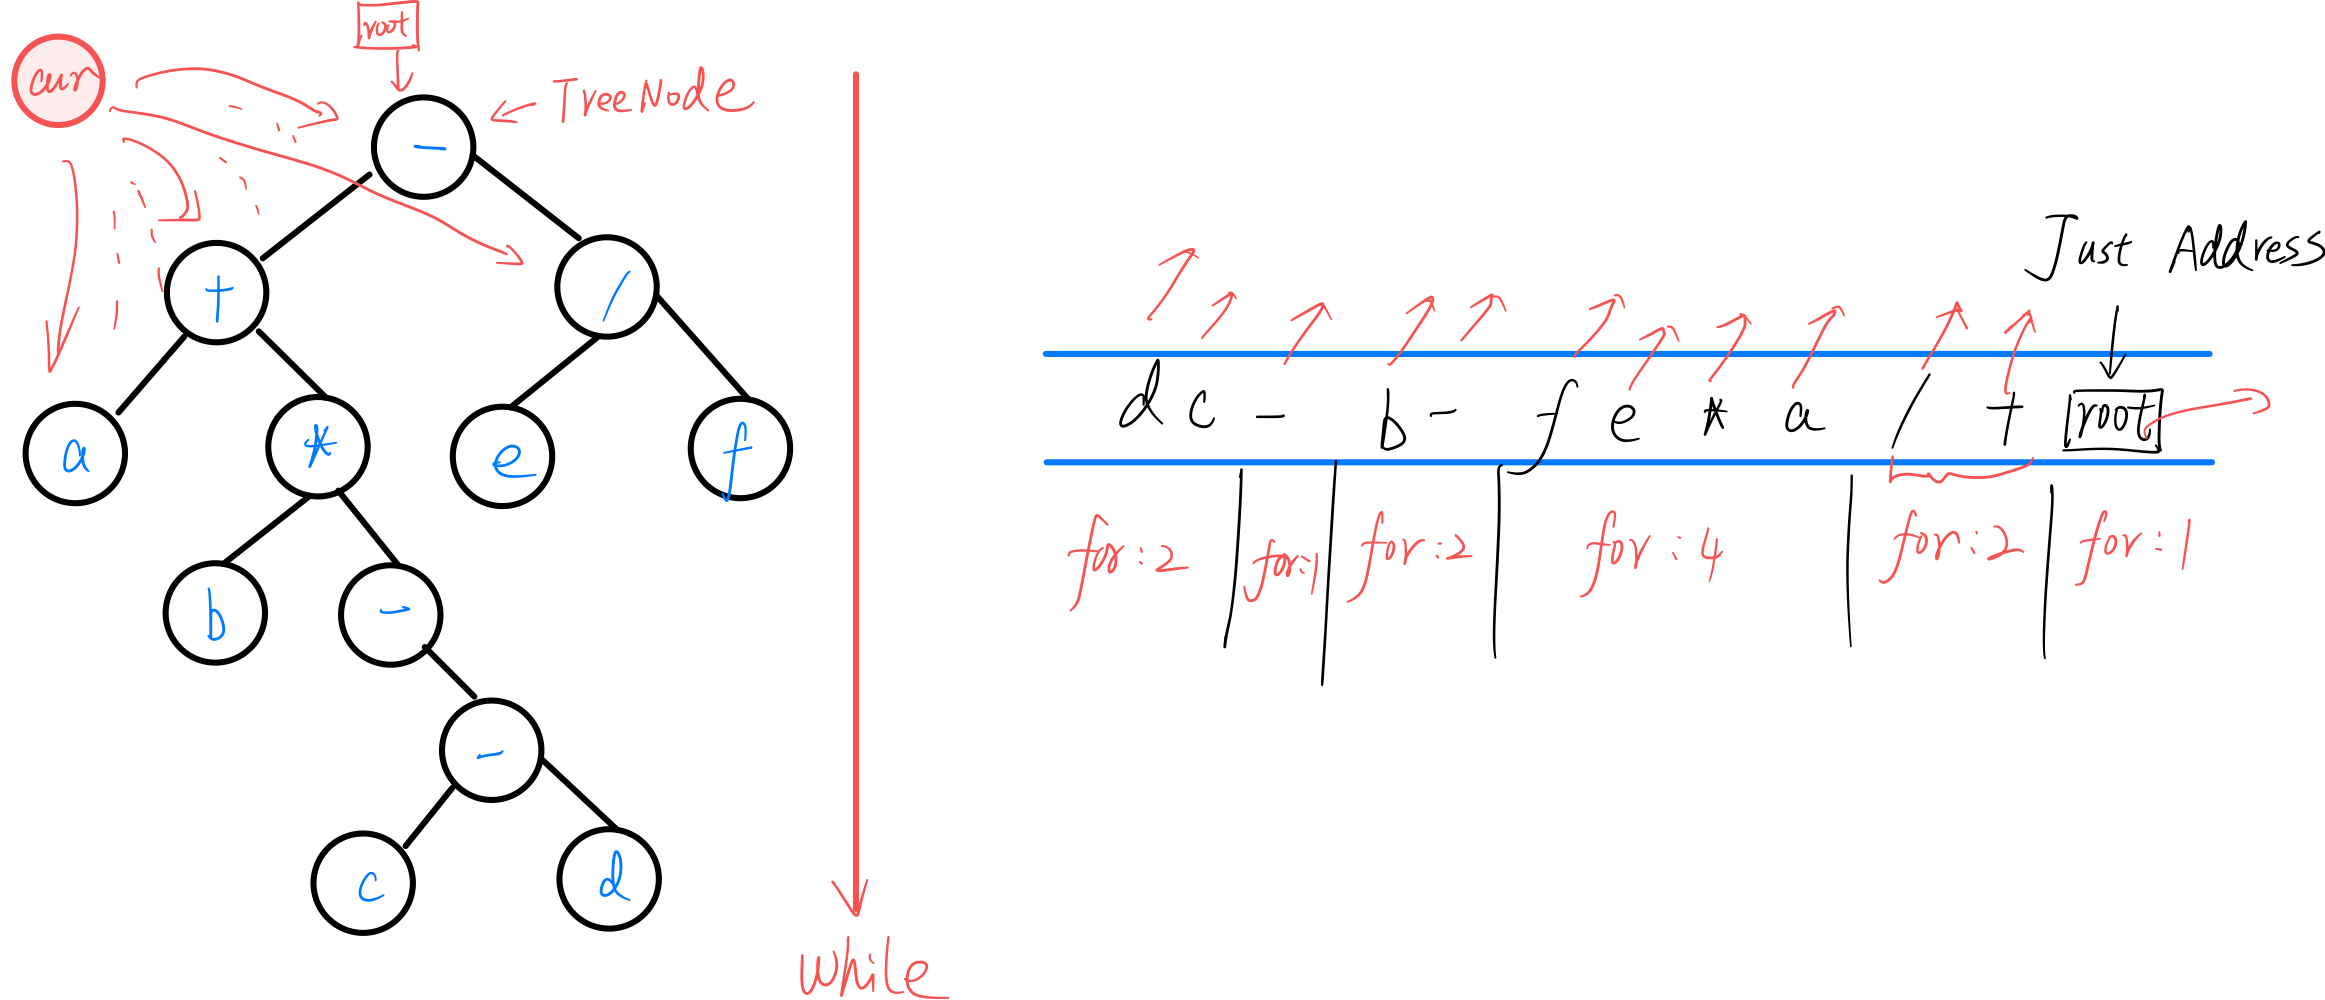 cur
root
TreeNode
-
+
/
a
*
e
f
b
-
-
c
d
while
Just Address
d c - b - f e * a / + root
for:2 for:1 for:2 for:4 for:2 for:1